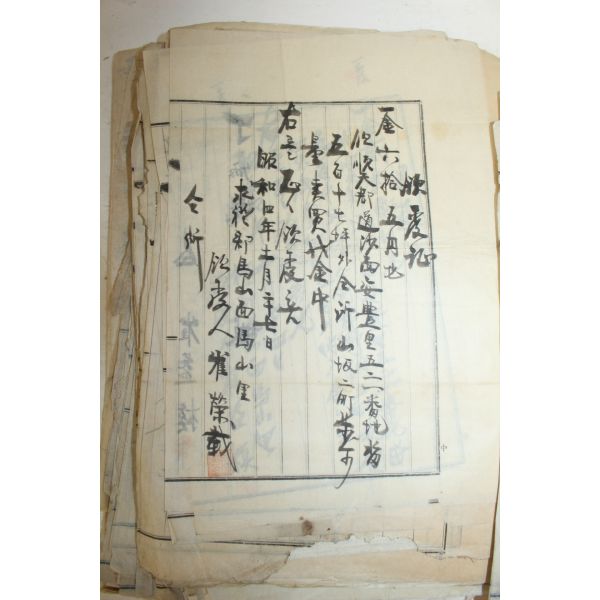 領受証
金六拾五円也
但順天郡道沙面安豊里五二一番地畓
五百十七坪外仝所山坂二町
量 賣買代金中
右是正に領受候
昭和四年十二月二十七日
求禮郡馬山面馬山里
領受人 崔榮載
仝所